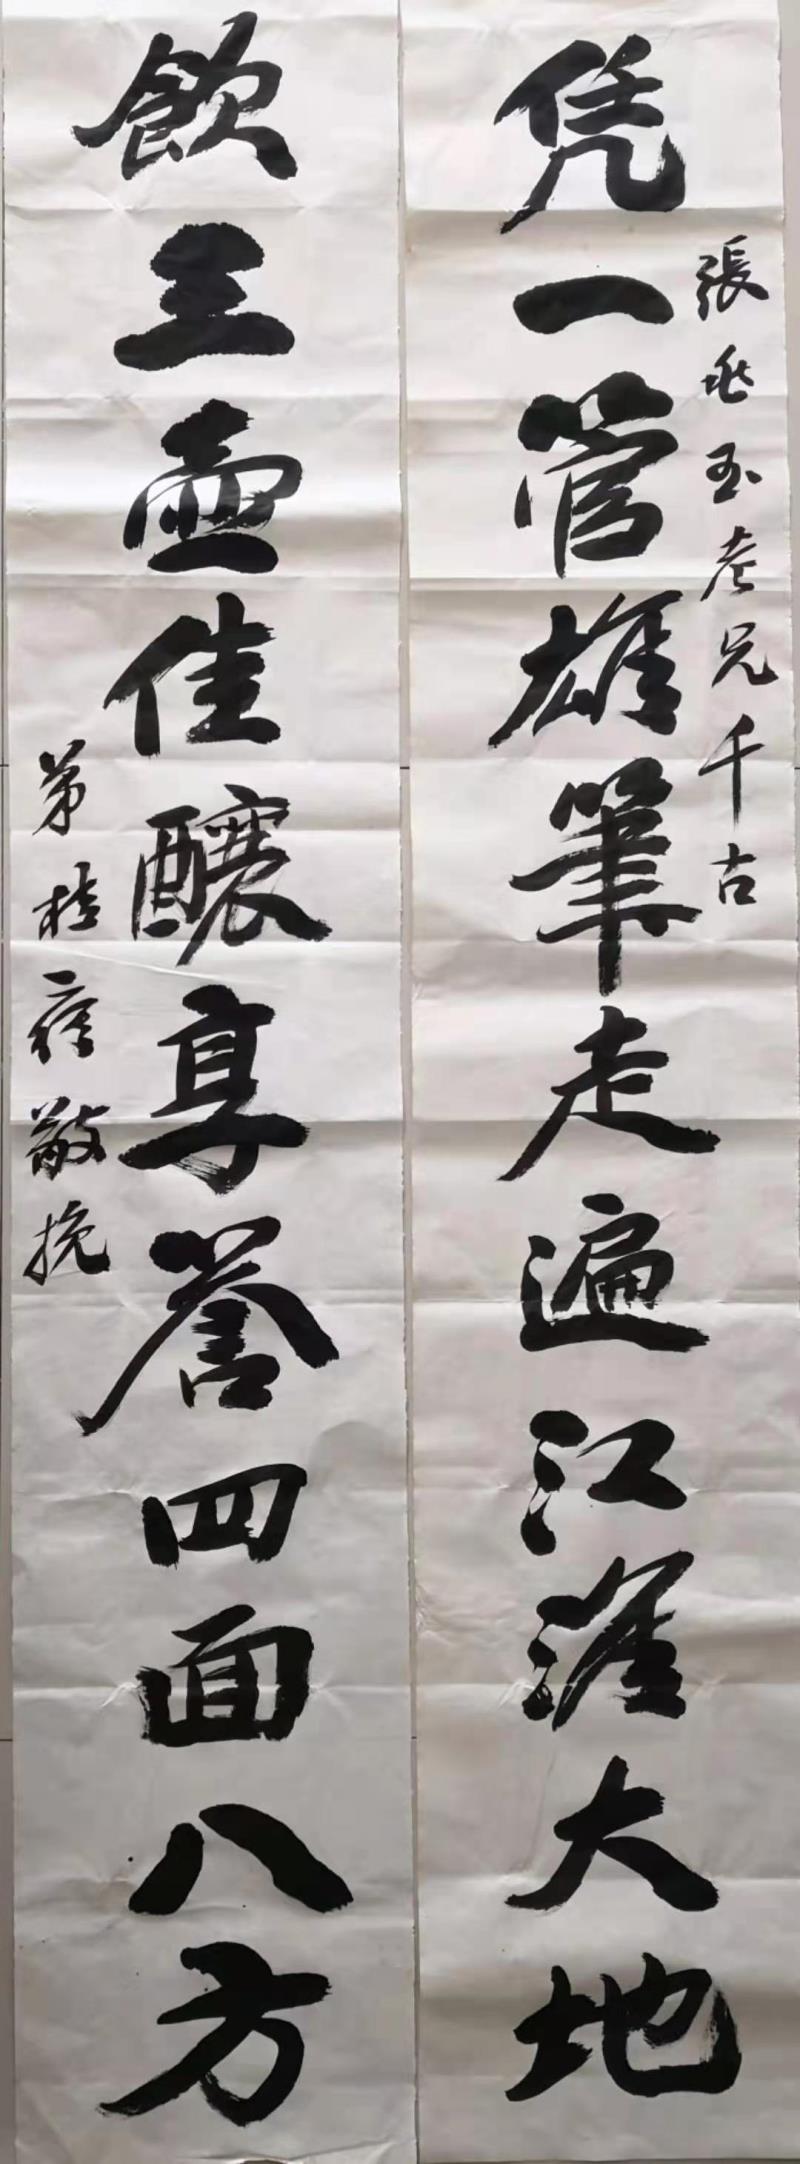 張兆玉老兄千古
凭一管雄筆走遍江淮大地
飲三壺佳釀享譽四面八方
弟桂敬挽